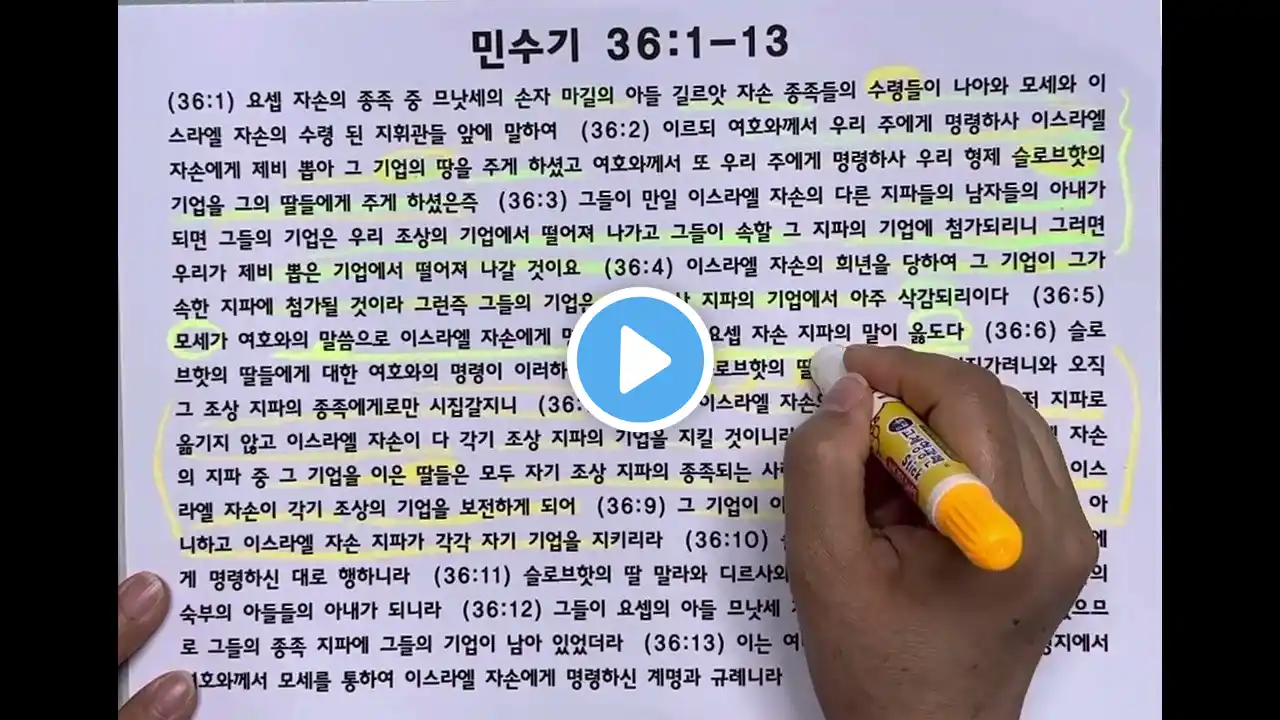 민수기 36:1-13
(36:1) 요셉 자손의 종족 중 므낫세의 손자 마길의 아들 길르앗 자손 종족들의 수령들이 나아와 모세와 이
스라엘 자손의 수령 된 지휘관들 앞에 말하여 (36:2) 이르되 여호와께서 우리 주에게 명령하사 이스라엘
자손에게 제비 뽑아 그 기업의 땅을 주게 하셨고 여호와께서 또 우리 주에게 명령하사 우리 형제 슬로브핫의
기업을 그의 딸들에게 주게 하셨은즉 (36:3) 그들이 만일 이스라엘 자손의 다른 지파들의 남자들의 아내가
되면 그들의 기업은 우리 조상의 기업에서 떨어져 나가고 그들이 속할 그 지파의 기업에 첨가되리니 그러면
우리가 제비 뽑은 기업에서 떨어져 나갈 것이요 (36:4) 이스라엘 자손의 희년을 당하여 그 기업이 그가
속한 지파에 첨가될 것이라 그런즉 그들의 기업은 지파의 기업에서 아주 삭감되리이다 (36:5)
모세가 여호와의 말씀으로 이스라엘 자손에게 요셉 자손 지파의 말이 옳도다 (36:6) 슬로
브핫의 딸들에게 대한 여호와의 명령이 이러하 로브핫의 딸 오직
그 조상 지파의 종족에게로만 시집갈지니 이스라엘 자손의 지파로
옮기지 않고 이스라엘 자손이 다 각기 조상 지파의 기업을 지킬 것이니라 자손
의 지파 중 그 기업을 이은 딸들은 모두 자기 조상 지파의 종족되는 사 이스
라엘 자손이 각기 조상의 기업을 보전하게 되어 (36:9) 그 기업이 아
니하고 이스라엘 자손 지파가 각각 자기 기업을 지키리라 (36:10) 에
게 명령하신 대로 행하니라 (36:11) 슬로브핫의 딸 말라와 디르사와 의
숙부의 아들들의 아내가 되니라 (36:12) 그들이 요셉의 아들 므낫세 으므
로 그들의 종족 지파에 그들의 기업이 남아 있었더라 (36:13) 이는 여 지에서
여호와께서 모세를 통하여 이스라엘 자손에게 명령하신 계명과 규례니라
Stick